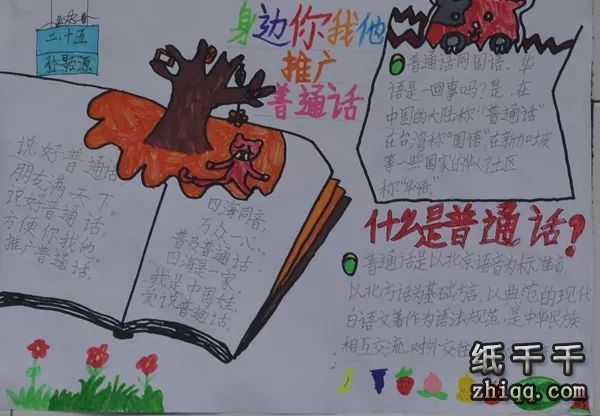 二.十五
孙颢源
身边你我他
推广
普通话
普通话同国语、华
语是一回事吗？是，在
中国的大陆称“普通话”
在台湾称“国语”在新加坡
第一些国家的华人社区
称“华语”
说好普通话，
朋友满天下，
说好普通话，
方便你我他，
推广普通话，
四海同音，
万众一心，
普及普通话，
四海是一家，
我是中国娃
爱说普通话，
什么是普通话？
普通话是以北京语音为标准音
以北方话为基础方言，以典范的现代
白话文著作为语法规范，是中华民族
相互交流，对外交往
纸千千
zhiqq.com